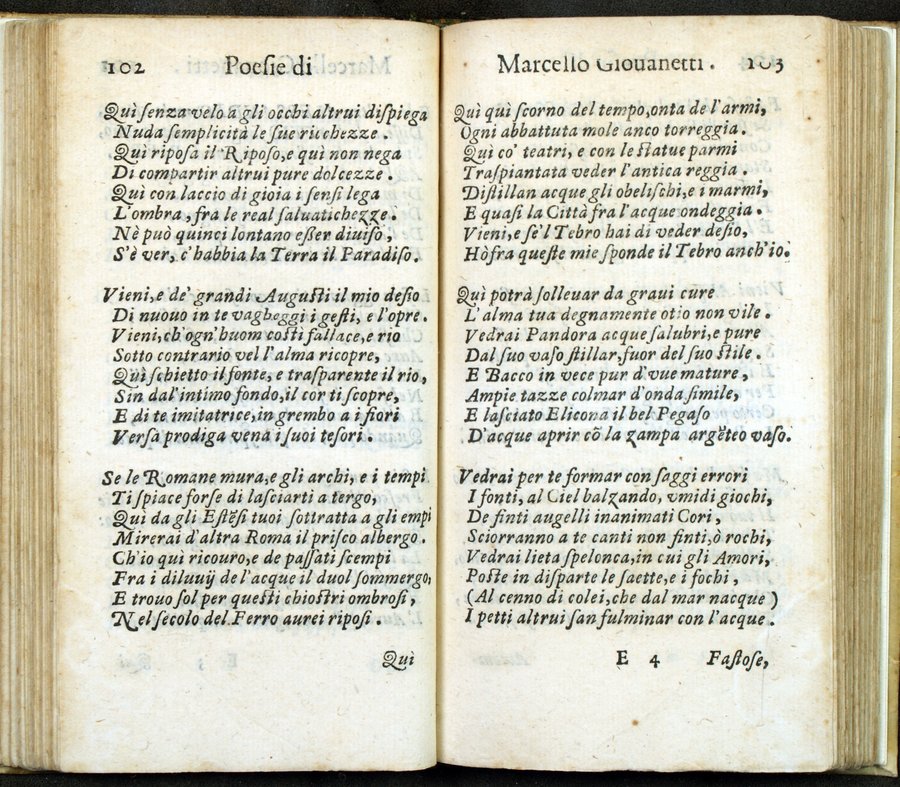 102 Poesie di
Quì senza velo a gli occhi altrui dispiega
Nuda semplicità le sue ricchezze.
Quì riposa il Riposo, e quì non nega
Di compartir altrui pure dolcezze.
Quì con laccio di gioia i sensi lega
L'ombra, fra le real saluatichezze.
Nè può quinci lontano eßer diuiso,
S'è ver, c'habbia la Terra il Paradiso.
Vieni, e de' grandi Augusti il mio desio
Di nuouo in te vagheggi i gesti, e l'opre.
Vieni, ch'ogn'huom costì fallace, e rio
Sotto contrario vel l'alma ricopre,
Quì schietto il fonte, e trasparente il rio,
Sin dal'intimo fondo, il cor ti scopre,
E di te imitatrice, in grembo a i fiori
Versa prodiga vena i suoi tesori.
Se le Romane mura, e gli archi, e i tempi
Ti spiace forse di lasciarti a tergo,
Quì da gli Estēsi tuoi sottratta a gli empi
Mirerai d'altra Roma il prisco albergo.
Ch'io qui ricouro, e de passati scempi
Fra i diluuij de l'acque il duol sommergo,
E trouo sol per questi chiostri ombrosi,
Nel secolo del Ferro aurei riposi.
Quì
Marcello Giouanetti. 103
Quì quì scorno del tempo, onta de l'armi,
Ogni abbattuta mole anco torreggia.
Quì co' teatri, e con le statue parmi
Traspiantata veder l'antica reggia.
Distillan acque gli obelischi, e i marmi,
E quasi la Città fra l'acque ondeggia.
Vieni, e se'l Tebro hai di veder desio,
Hò fra queste mie sponde il Tebro anch'io.
Quì potrà solleuar da graui cure
L'alma tua degnamente otio non vile.
Vedrai Pandora acque salubri, e pure
Dal suo vaso stillar, fuor del suo stile.
E Bacco in vece pur d'vue mature,
Ampie tazze colmar d'onda simile,
E lasciato Elicona il bel Pegaso
D'acque aprir cō la zampa argēteo vaso.
Vedrai per te formar con saggi errori
I fonti, al Ciel balzando, vmidi giochi,
De finti augelli inanimati Cori,
Sciorranno a te canti non finti, ò rochi,
Vedrai lieta spelonca, in cui gli Amori,
Poste in disparte le saette, e i fochi,
(Al cenno di colei, che dal mar nacque)
I petti altrui san fulminar con l'acque.
E 4 Fastose,